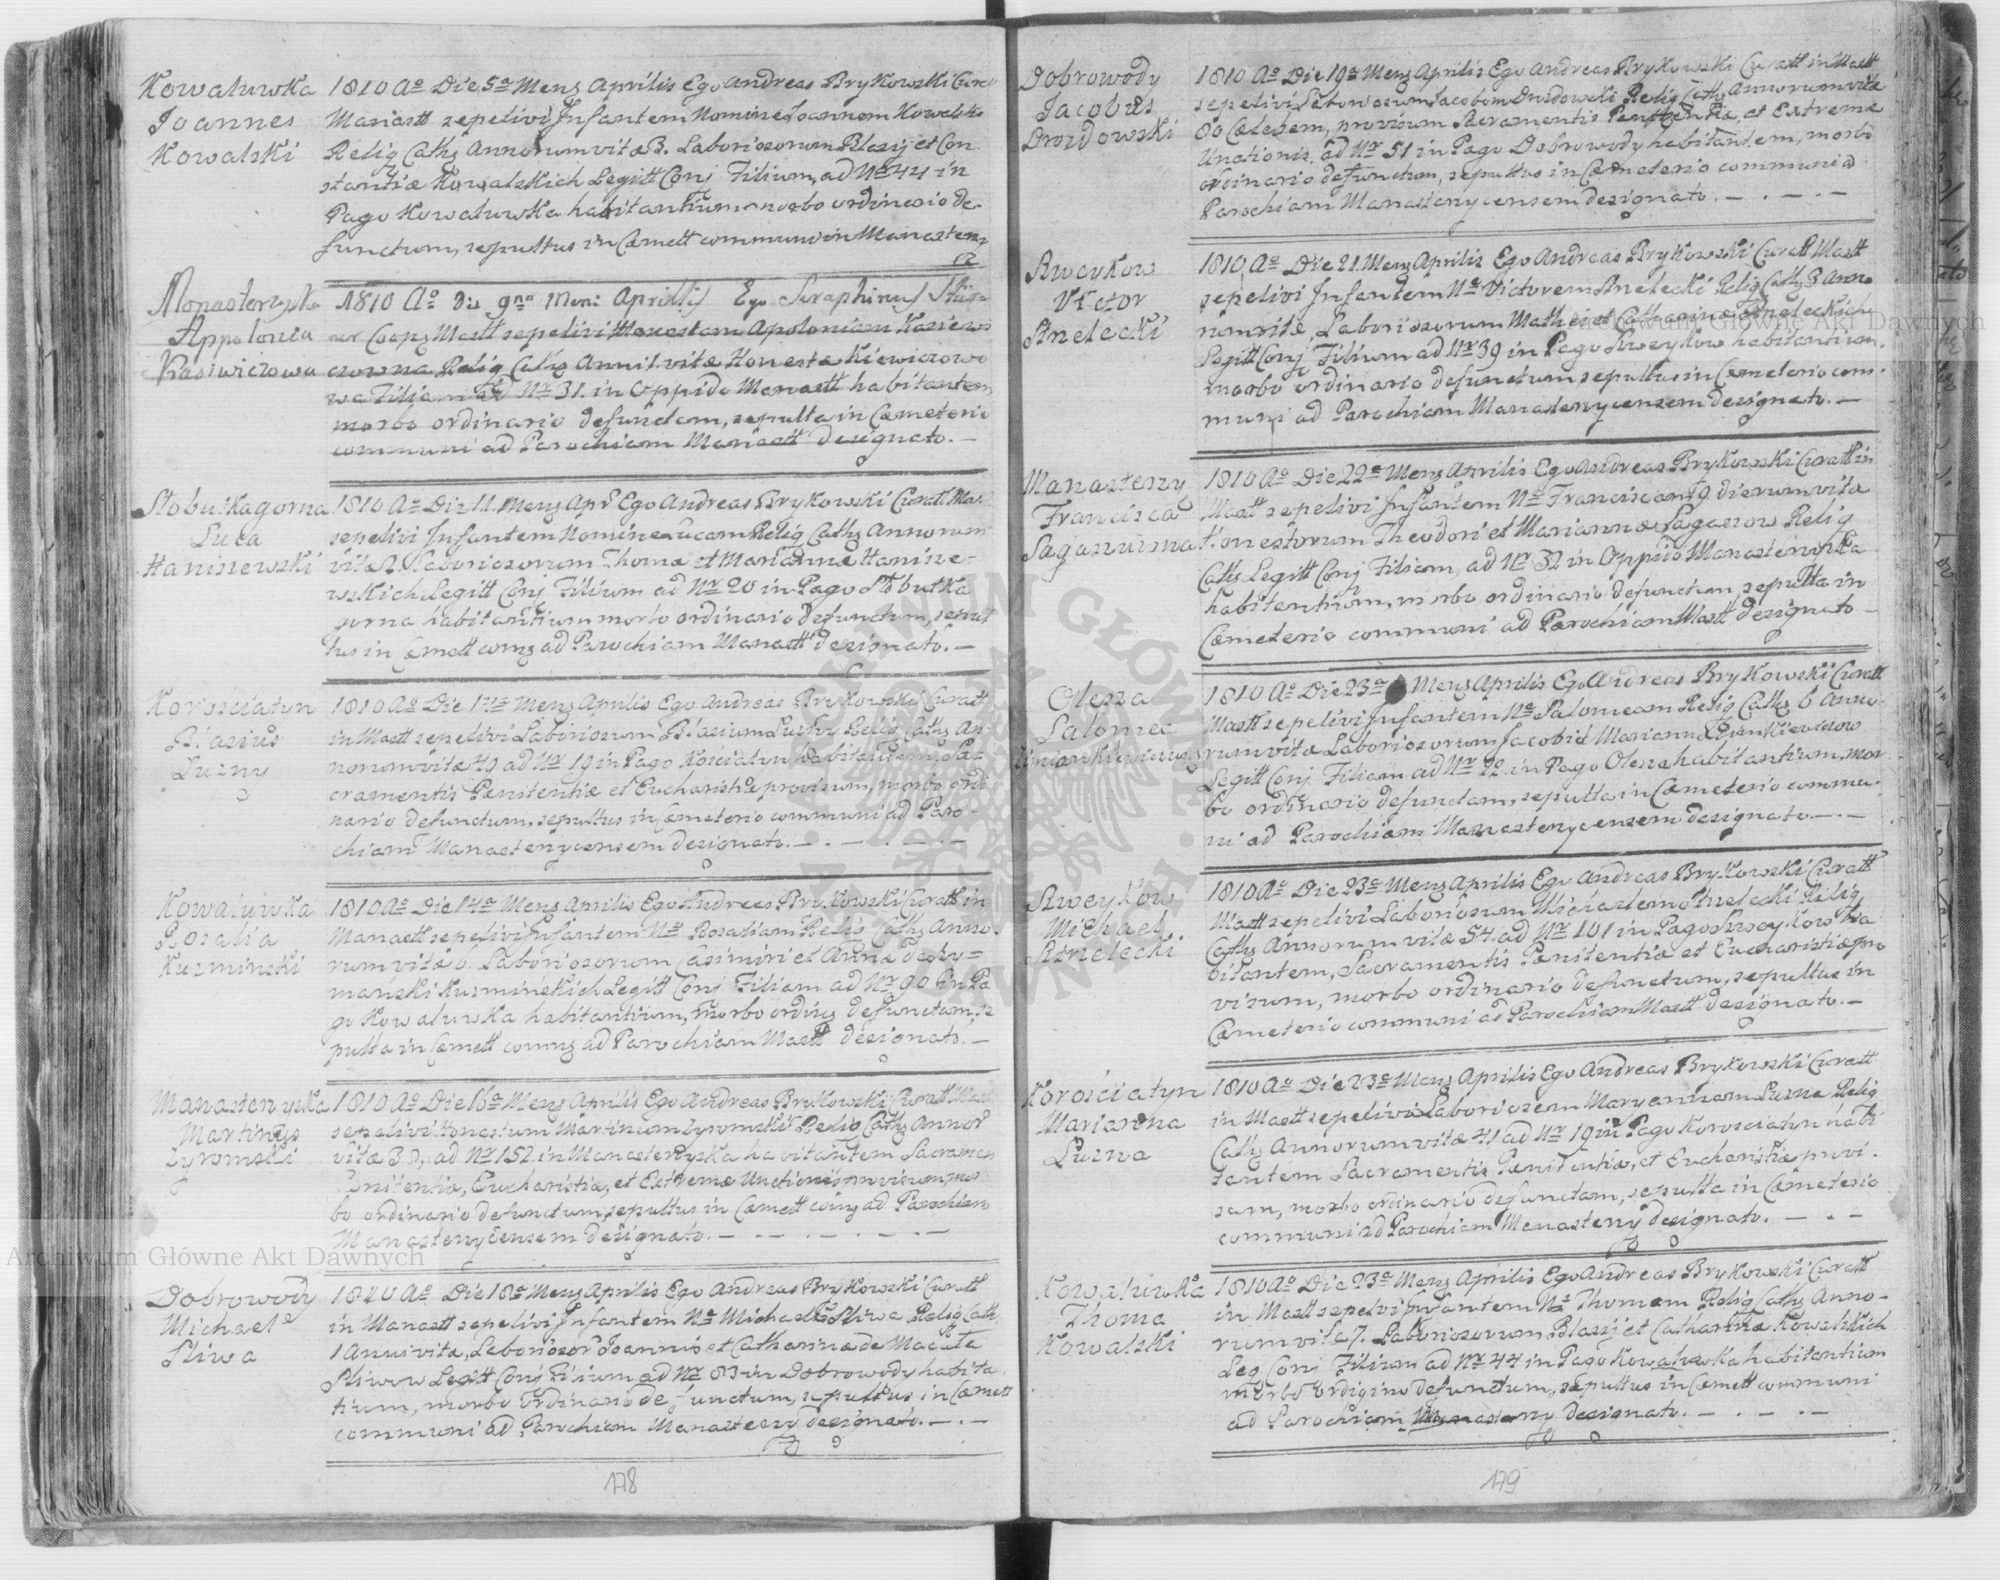 Kowaluwka
Joannes
Kowalski
1810 Aº Die 5ª Mens Aprilis Ego Andreas Brykowski Curat
Manastt sepelivi Infantem Nomine Joannem Kowalski
Relig Cath Annorum vitæ 3. Laboriosorum Blasij et Con
stantiæ Kowalskich Legitt Conj Filium, ad Nr 44 in
Pago Kowaluwka habitantium morbo ordinario de
functum, sepultus in Cæmett communi in Manasterz
Monasterzyska
Appolonia
Kasiwiczowa
1810 Aº Die 9na Mens Aprillis Ego Seraphinus
Coop Mastt sepelivi Honestam Apoloniam
Relig Cath Anni 1 vitæ Honestæ
Filiam ad Nr 31. in Oppido Manastt habitantem,
morbo ordinario defunctam, sepulta in Cæmeterio
communi ad Parochiam Manastt designato. —
Slobutkagorna
Luca
Haniszewski
1810 Aº Die 11. Mens Apr Ego Andreas Brykowski Curatt Mas
sepelivi Infantem Nomine Lucam Relig Cath Annorum
vitæ 2. Laboriosorum Thomæ et Mariannæ Hanisze-
wskich Legitt Conj Filium ad Nr 20 in Pago Slobutka
gorna habitantium morbo ordinario defunctum, sepul
tus in Cæmett comu ad Parochiam Manastt designato. —
Korościatyn
Blasius
Luzny
1810 Aº Die 14ª Mens Aprilis Ego Andreas Brykowski Curatt
in Mastt sepelivi Laboriosum Blasium Luzny Relig Cath An
norum vitæ 49 ad Nr 19 in Pago Kościatyn habitantem, Sa=
cramentis Pænitentiæ et Eucharistiæ provisum, morbo ordi
nario defunctum, sepultus in Cæmeterio communi ad Paro-
chiam Manasterzycensem designato. — . — . — . —
Kowaluwka
Rosalia
Kuzminski
1810 Aº Die 14ª Mens Aprilis Ego Andreas Brykowski Curatt in
Manastt sepelivi Infantem Nª Rosaliam Relig Cath Anno.
rum vitæ 6. Laboriosorum Casimiri et Annæ
manski Kuzminskich Legitt Conj Filiam ad Nr 90 in Pa
go Kowaluwka habitantium, morbo ordin defunctam, se
pulta in Cæmett comu ad Parochiam Mastt designato. —
Manasterzyska
Martinus
Zyromski
1810 Aº Die 16ª Mens Aprilis Ego Andreas Brykowski Curatt Mast
sepelivi Honestum Martinum Zyromski Relig Cath Annor
vitæ 39, ad Nr 152 in Manasterzyska habitantem Sacramen
Pænitentiæ, Eucharistiæ, et Extremæ Unctionis provisum, mor
bo ordinario defunctum, sepultus in Cæmett comu ad Parochiam
Manasterzycensem designato. — — . — . —
Dobrowody
Michael
Sliwa
1810 Aº Die 18ª Mens Aprilis Ego Andreas Brykowski Curatt
in Manastt sepelivi Infantem Nª Michael Sliwa Relig Cath
1 Anni vitæ, Laboriosor Joannis et Catharinæ de Maçuta
Sliwow Legitt Conj Filium ad Nr 83 in Dobrowody habita
tium, morbo ordinario defunctum, sepultus in Cæmett
communi ad Parochiam Manasterzy designato. — . —
178
Dobrowody
Jacobus
Drozdowski
1810 Aº Die 19ª Mens Aprilis Ego Andreas Brykowski Curatt in Mastt
sepelivi Laboriosum Jacobum Drozdowski Relig Cath Annorum vitæ
80 Cælebem, provisum Sacramentis Pænitentiæ, et Extremæ
Unctionis, ad Nr 51 in Pago Dobrowody habitantem, morbo
ordinario defunctum, sepultus in Cæmeterio communi ad
Parochiam Manasterzycensem designato. — . — . —
Sweykow
Victor
Strelecki
1810 Aº Die 21. Mens Aprilis Ego Andreas Brykowski Curatt Mastt
sepelivi Infantem Nª Victorem Strelecki Relig Cath 3 Anno
rum vitæ, Laboriosorum Mathei et Catharinæ Streleckich
Legitt Conj Filium ad Nr 39 in Pago Sweykow habitantium,
morbo ordinario defunctum sepultus in Cæmeterio com-
muni ad Parochiam Manasterzycensem designato. —
Manasterzy
Francisca
Saganuwna
1810 Aº Die 22ª Mens Aprilis Ego Andreas Brykowski Curatt in
Mastt sepelivi Infantem Nª Franciscam 9 dierum vitæ
Honestorum Theodori et Mariannæ Saganow Relig
Cath Legitt Conj Filiam, ad Nr 32 in Oppido Manasterzyska
habitantium, morbo ordinario defunctam, sepulta in
Cæmeterio communi ad Parochiam Mastt designato —
Olesza
Salomea
1810 Aº Die 23ª Mens Aprilis Ego Andreas Brykowski Curatt
Mastt sepelivi Infantem Nª Salomeam Relig Cath 6 Anno-
rum vitæ Laboriosorum Jacobi et Mariannæ
Legitt Conj Filiam ad Nr 22 in Pago Olesza habitantium, mor
bo ordinario defunctam, sepulta in Cæmeterio commu-
ni ad Parochiam Manasterzycensem designato. — . —
Sweykow
Michael
Strzelecki
1810 Aº Die 23ª Mens Aprilis Ego Andreas Brykowski Curatt
Mastt sepelivi Laboriosum Michaelem Strelecki Relig
Cath Annorum vitæ 54. ad Nr 101 in Pago Sweykow ha
bitantem, Sacramentis Pænitentiæ et Eucharistiæ pro
visum, morbo ordinario defunctum, sepultus in
Cæmeterio communi ad Parochiam Mastt designato. —
Korościatyn
Marianna
Luzna
1810 Aº Die 23ª Mens Aprilis Ego Andreas Brykowski Curatt
in Mastt sepelivi Laboriosam Maryannam Luzna Relig
Cath Annorum vitæ 41 ad Nr 19 in Pago Korosciatyn habi
tantem Sacramentis Pænitentiæ, et Eucharistiæ provi.
sam, morbo ordinario defunctam, sepulta in Cæmeterio
communi ad Parochiam Manasterzy designato. — . —
Kowaluwka
Thoma
Kowalski
1810 Aº Die 23ª Mens Aprilis Ego Andreas Brykowski Curatt
in Mastt sepelvi Infantem Nª Thomam Relig Cath Anno-
rum vitæ 7. Laboriosorum Blasij et Catharinæ Kowalskich
Leg Conj Filium ad Nr 44 in Pago Kowaluwka habitantium
morbo ordigino defunctum, sepultus in Cæmett communi
ad Parochiam Manasterzy designato. — . — . —
179
Archiwum Główne Akt Dawnych
Archiwum Główne Akt Dawnych
ARCHIWUM GŁÓWNE AKT DAWNYCH